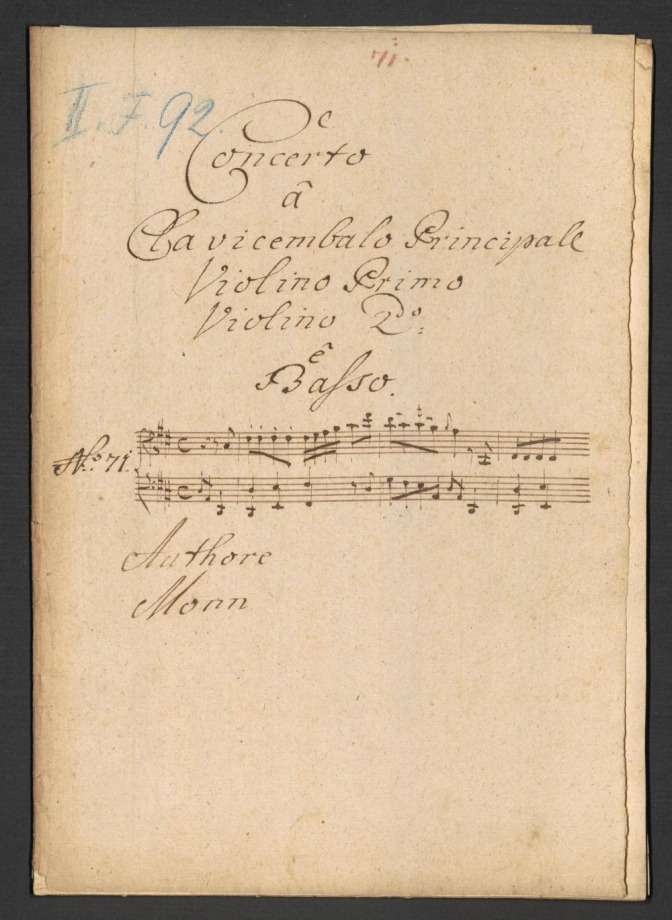 71.
II. F. 92.
Concerto
â
Clavicembalo Principale
Violino Primo
Violino 2do:
ê
Basso.
No: 71.
Authore
Monn